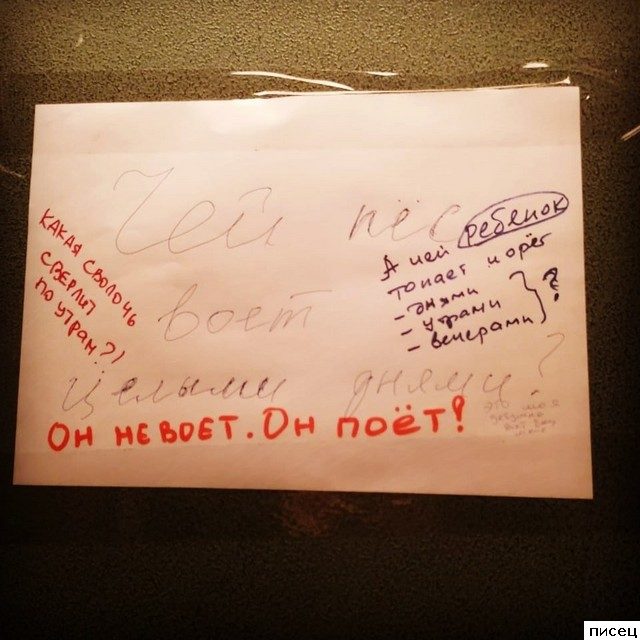 Чей пёс
воет
целыми днями?
КАКАЯ СВОЛОЧЬ
СВЕРЛИТ
ПО УТРАМ?!
А чей ребёнок
топает и орёт
- днями
- утрами
- вечерами
?
ОН НЕ ВОЕТ. ОН ПОЁТ!
это моя
писец